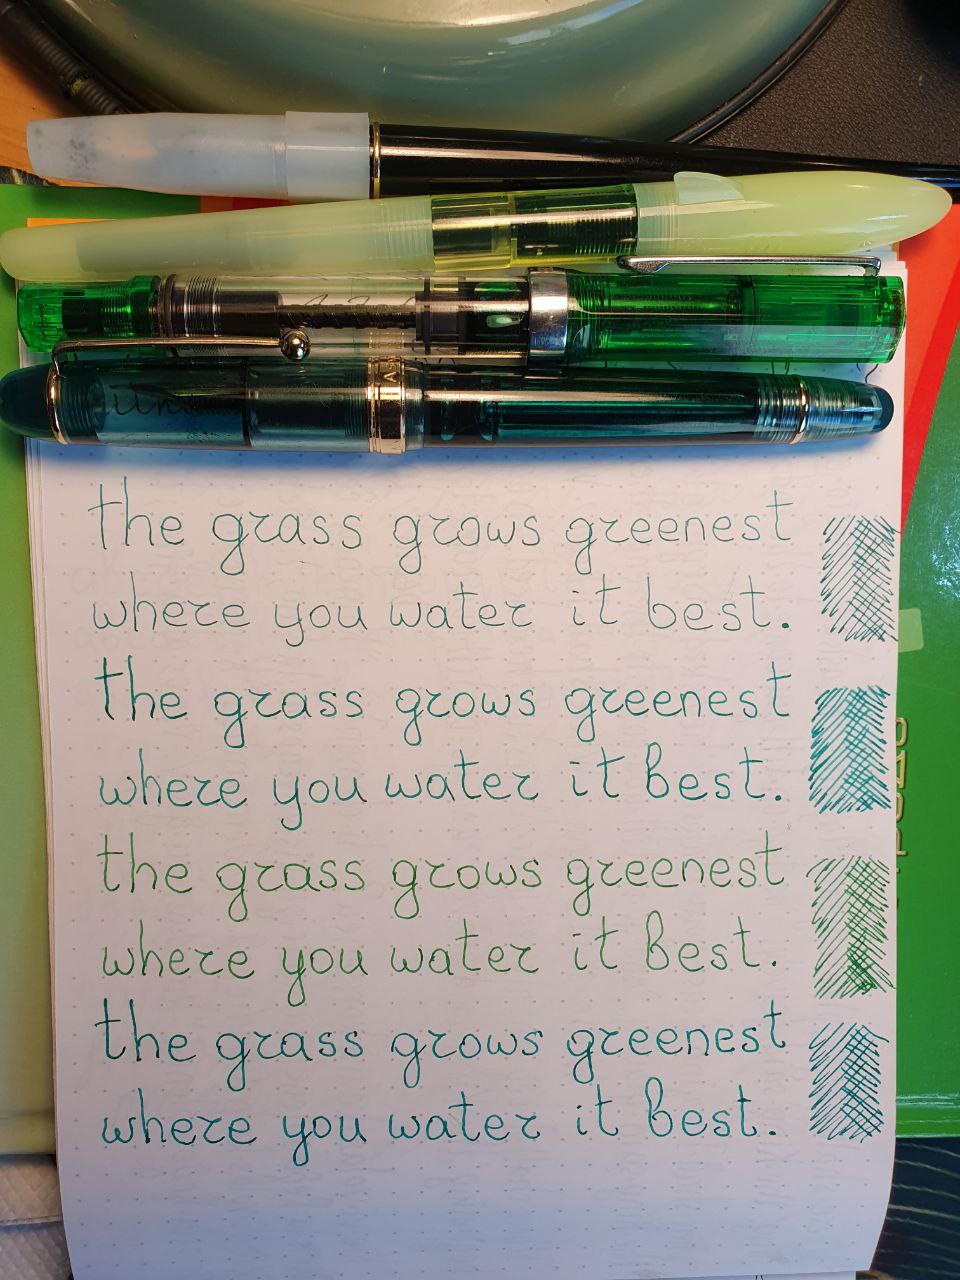 the grass grows greenest
where you water it best.
the grass grows greenest
where you water it best.
the grass grows greenest
where you water it best.
the grass grows greenest
where you water it best.